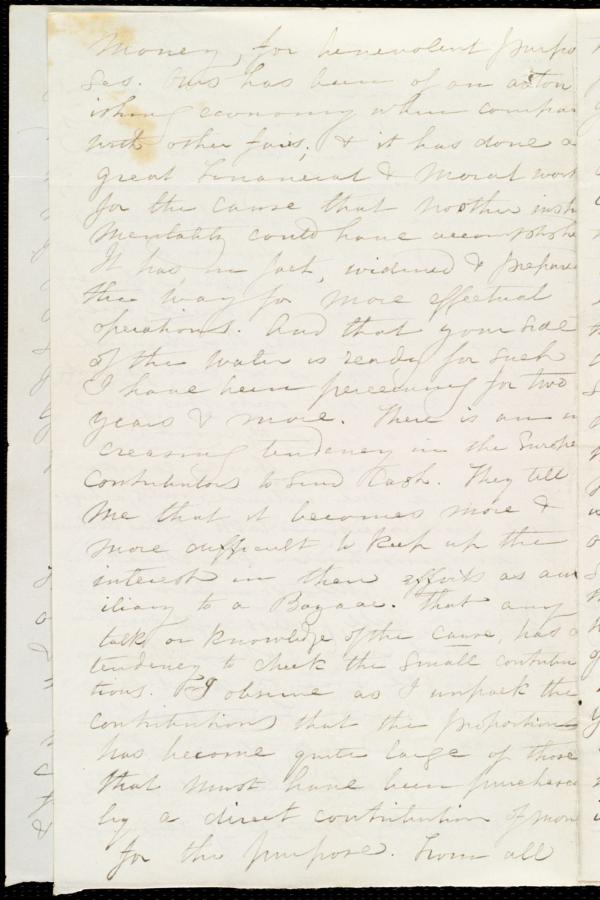 Money, for benevolent purpo
ses. This has been of an aston
ishing economy when compar
with other fairs, & it has done a
great Financial & Moral work
for the cause that no other inst
mentality could have accomplishe
It has, in fact, widened & prepare
the way for more effectual
operations. And that your side
of the water is ready for such
I have been perceiving for two
years & more. There is an in
creasing tendency in the Europe
Contributors to send Cash. They tell
me that it becomes more &
more difficult to keep up the
interest in their efforts as aux
iliary to a Bazaar. That any
talk or knowledge of the cause, has a
tendency to check the small contribu
tions. I observe as I unpack the
contributions that the proportion
has become quite large of those
that must have been purchased
by a direct contribution of mon
for the purpose. From all